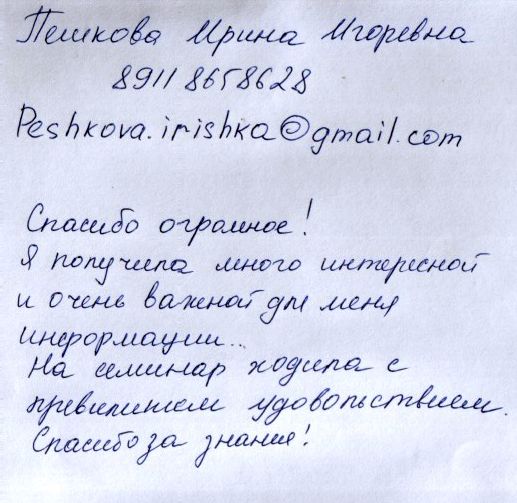 Пешкова Ирина Игоревна
8911 8658628
Peshkova.irishka@gmail.com
Спасибо огромное!
Я получила много интересной
и очень важной для меня
информации..
На семинар ходила с
превиликим удовольствием.
Спасибо за знания!